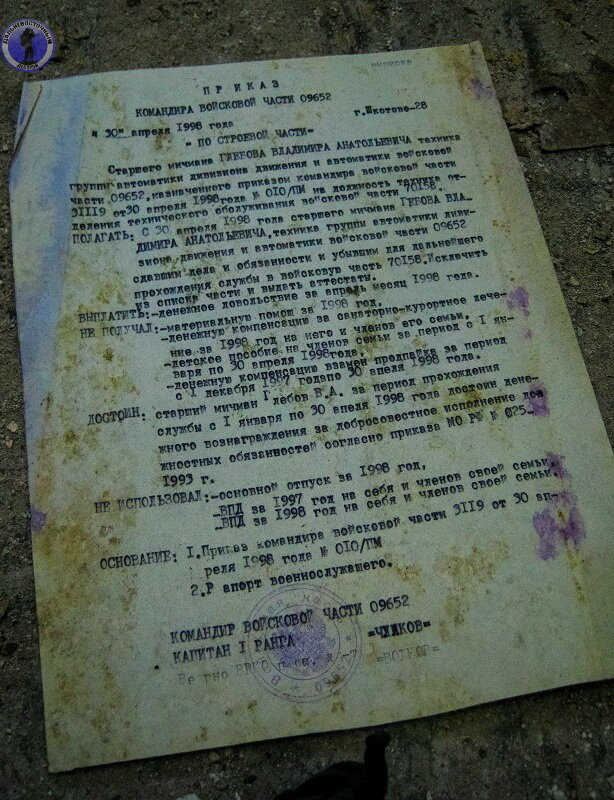 ДАЛЬНЕВОСТОЧНЫЙ
выписка
ПРИКАЗ
КОМАНДИРА ВОЙСКОВОЙ ЧАСТИ 09652
"30" апреля 1998 года г.Шкотово-28
= ПО СТРОЕВОЙ ЧАСТИ=
Старшего мичмана ГЛЕБОВА ВЛАДИМИРА АНАТОЛЬЕВИЧА техника
группы автоматики дивизиона движения и автоматики войсковой
части 09652, назначенного приказом командира войсковой части
3III9 от 30 апреля 1998 года № 0I0/ПМ на должность техника от-
деления технического обслуживания войсковой части 70I58.
ПОЛАГАТЬ: С 30 апреля 1998 года старшего мичмана ГЛЕБОВА ВЛА-
ДИМИРА АНАТОЛЬЕВИЧА, техника группы автоматики диви-
зиона движения и автоматики войсковой части 09652
сдавшим дела и обязанности и убывшим для дальнейшего
прохождения службы в войсковую часть 70I58. Исключить
из списка части и выдать аттестаты.
ВЫПЛАТИТЬ:-денежное довольствие за апрель месяц 1998 года.
НЕ ПОЛУЧАЛ:-материальную помощ за 1998 год.
-денежную компенсацию за санаторно-курортное лече-
ние за 1998 год на него и членов его семьи.
-детское пособие на членов семьи за период с I ян-
варя по 30 апреля 1998года.
-денежную компенсацию взамен продпайка за период
с I декабря 1997 годапо 30 апеля 1998 года.
ДОСТОИН: старший мичман Глебов В.А. за период прохождения
службы с I января по 30 апеля 1998 года достоин дене-
жного вознаграждения за добросовестное исполнение дол
жностных обязанностей согласно приказа МО РФ № 025
1993 г.
НЕ ИСПОЛЬЗОВАЛ:-основной отпуск за 1998 год.
_ВПД за 1997 год на себя и членов своей семьи.
_ВПД за 1998 год на себя и членов своей семьи.
ОСНОВАНИЕ: I.Приказ командира войсковой части 3II9 от 30 ап-
реля 1998 года № 0I0/ПМ
2.Р апорт военнослужащего.
КОМАНДИР ВОЙСКОВОЙ ЧАСТИ 09652
КАПИТАН I РАНГА =ЧУЛКОВ=
=ВОЛКОВ=